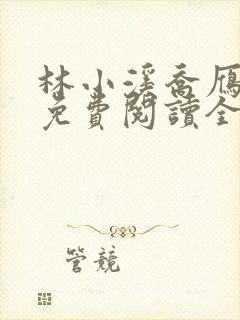 林小溪喬雁
免費閱讀全
管競